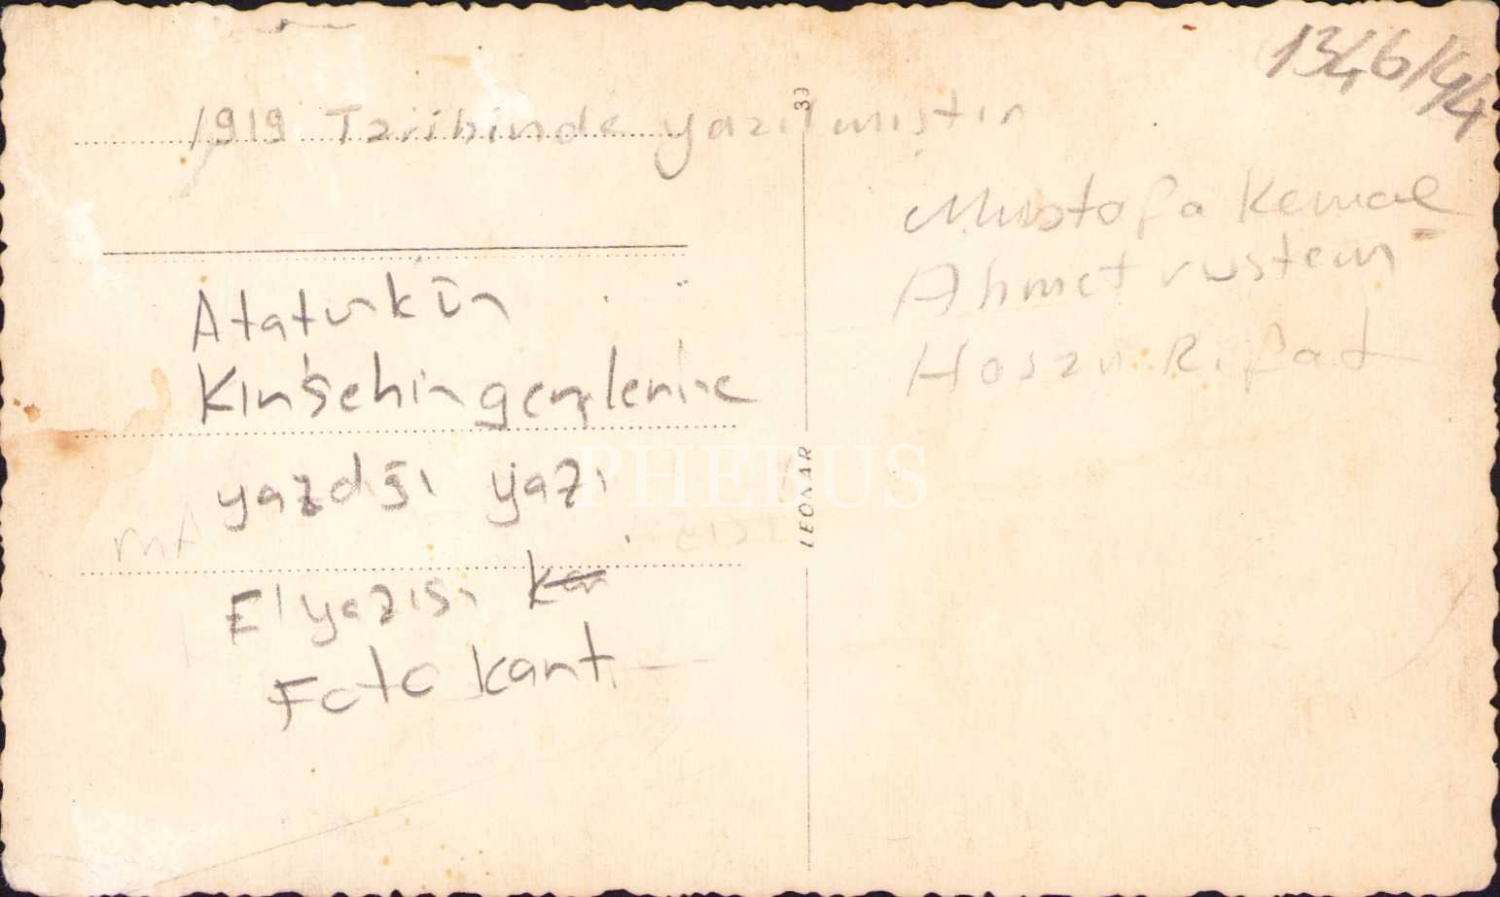 1346/44
1919 Tarihinde yazılmıştır
Atatürkün
Kırşehir gençlerine
yazdığı yazı
El yazısı
Foto kart
Mustafa Kemal
Ahmet rustem
Hosan Rifat
33
LEONAR
PHEBUS